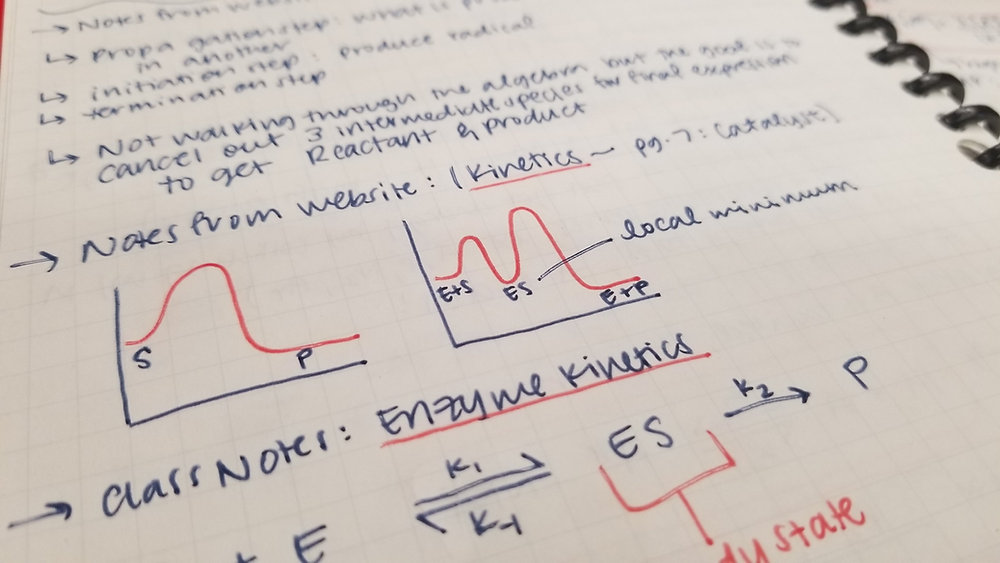 → Notes from
↳ Propagation step: what is
in another
↳ initiation step: produce radical
↳ termination step
↳ Not walking through the algebra but the goal is to
cancel out 3 intermediate species for final expression
to get Reactant & product
→ Notes from website: (Kinetics ~ pg. 7: Catalyst)
local minimum
E+S ES E+P
S P
→ Class Notes: Enzyme Kinetics
K1 ES K2 P
E K-1
dy state